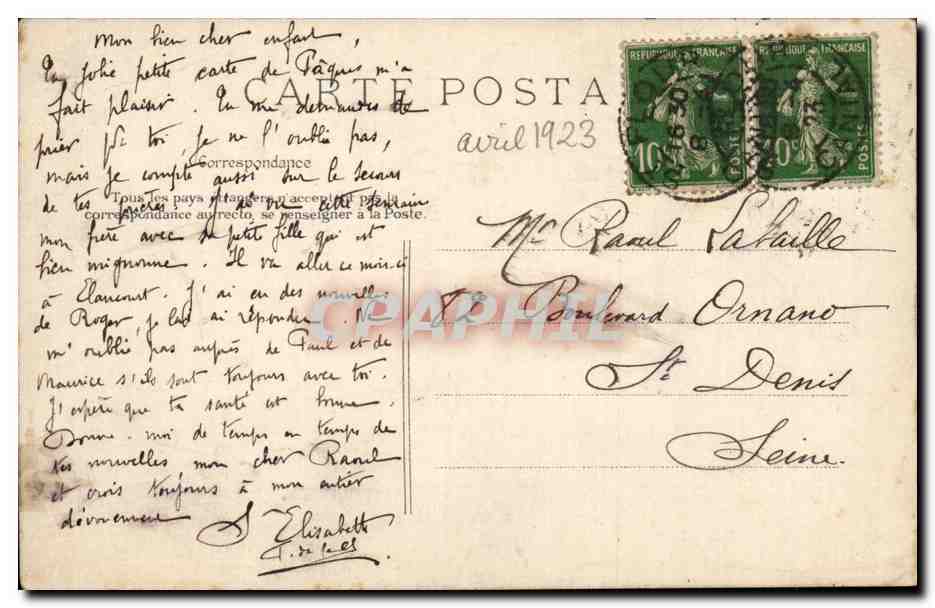 Mon bien cher enfant,
Ta jolie petite carte de Pâques m'a
fait plaisir. Tu me demandes de
prier pr toi, je ne l'oublie pas,
mais je compte aussi sur le secours
de tes prières. J'ai vu cette semaine
mon frère avec sa petite fille qui est
bien mignonne. Il va aller ce mois-ci
à Elancourt. J'ai eu des nouvelles
de Roger, je lui ai répondu. Ne
m'oublie pas auprès de Paul et de
Maurice s'ils sont toujours avec toi.
J'espère que ta santé est bonne.
Donne-moi de temps en temps de
tes nouvelles, mon cher Raoul
et crois toujours à mon entier
dévouement
Sr Elisabeth
CARTE POSTA
Correspondance
Tous les pays étrangers n'acceptent pas la
correspondance au recto, se renseigner à la Poste.
avril 1923
REPUBLIQUE FRANÇAISE
10c POSTES
REPUBLIQUE FRANÇAISE
10c POSTES
16 30
8
23
Mr Raoul Labaille
Boulevard Ornano
St Denis
Seine.
CPAPHIL